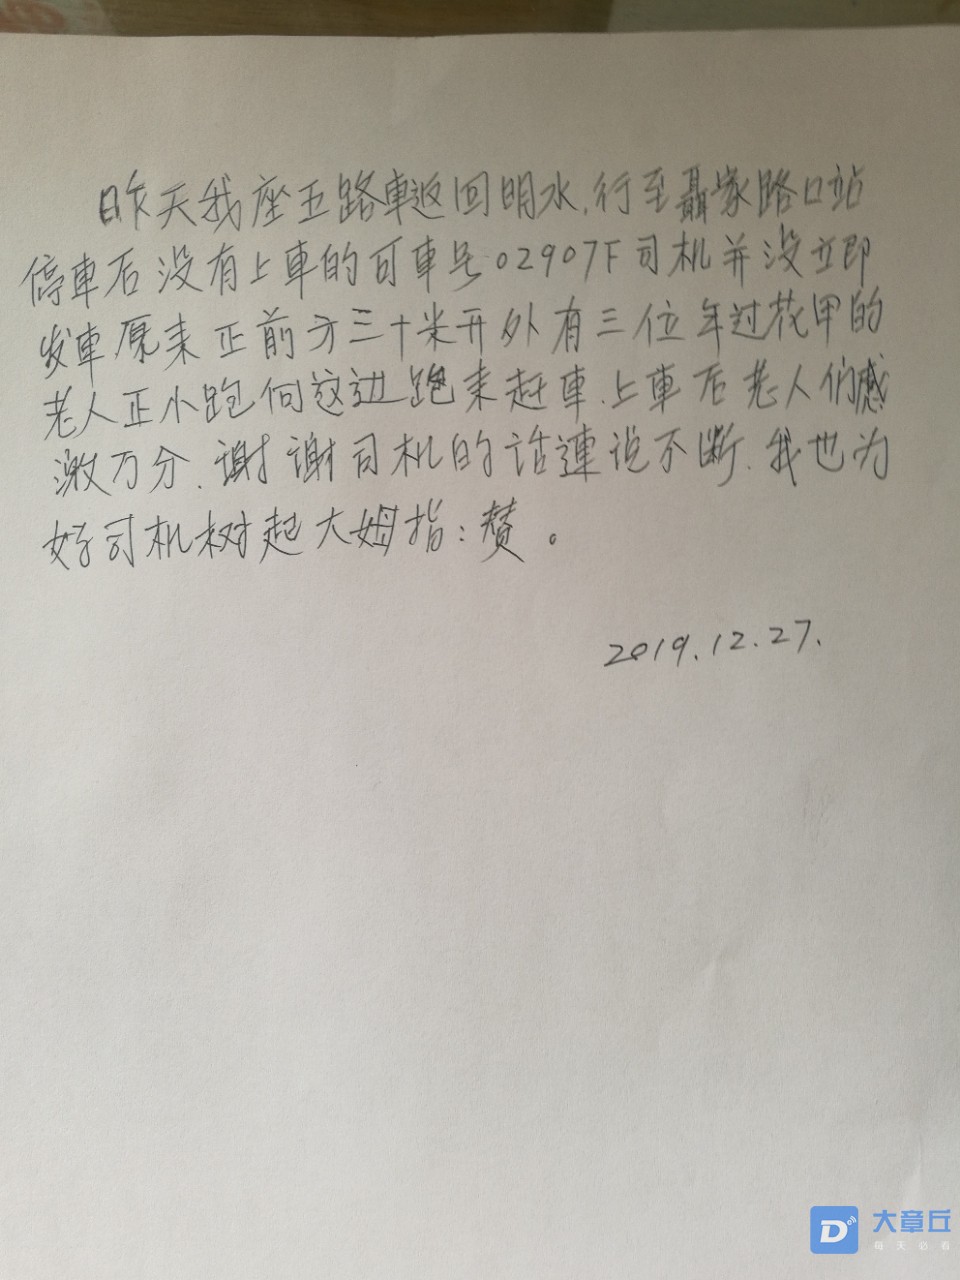 昨天我座五路車返回明水.行至聶家路口站
停車后没有上車的可車号02907F司机并没立即
发車原来正前方三十米开外有三位年过花甲的
老人正小跑向这边跑来赶車.上車后老人们感
激万分.谢谢司机的话連说不断.我也为
好司机树起大姆指:赞。
2019.12.27.
大章丘
每天必看